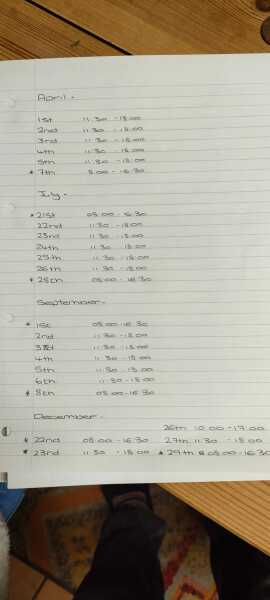 April.
1st 11.30 - 18.00
2nd 11.30 - 18.00
3rd 11.30 - 18.00
4th 11.30 - 18.00
5th 11.30 - 18.00
* 7th 8.00 - 16.30
July.
* 21st 08.00 - 16.30
22nd 11.30 - 18.00
23rd 11.30 - 18.00
24th 11.30 18.00
25th 11.30 - 18.00
26th 11.30 - 18.00
* 28th 08.00 - 16.30
September.
* 1st 08.00 - 16.30
2nd 11.30 - 18.00
3rd 11.30 - 18.00
4th 11.30 - 18.00
5th 11.30 - 18.00
6th 11.30 - 18.00
* 8th 08.00 - 16.30
December.
26th 10.00 - 17.00
* 22nd 08.00 - 16.30 27th 11.30 - 18.00
* 23rd 11.30 - 18.00 * 29th 08.00 - 16.30